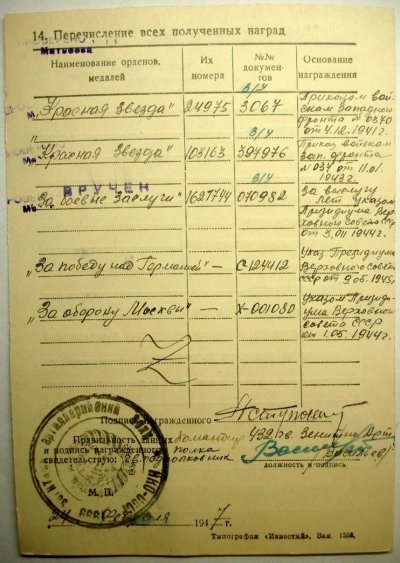 14. Перечисление всех полученных наград
Матвеева
Наименование орденов, медалей
Их номера
№№ документов
Основание награждения
„Красная Звезда" 24975 в/ч 3067 Приказом войскам Западного фронта № 0370 от 4.12.1941г.
„Красная Звезда" 103163 в/ч 394976 Приказ войскам Зап. фронта № 034 от 11.01. 1943г.
ВРУЧЕН
„За боевые Заслуги" 1627744 в/ч 070982 За выслугу лет указом Президиума Верховного совета СССР от 3.011 1944г.
„За победу над Германией" — С-124412 Указ Президиума Верховного совета СССР от 9.05.1945г.
„За оборону Москвы" — Х-001080 Указом Президиума Верховного совета СССР от 1.05.1944г.
Подпись награжденного
Правильность данных Командир 432 гв. Зенитно Арт
и подпись награжденного полка
свидетельствую: гв. подполковник
должность и подпись
М. П.
24 февраля 1947 г.
Типография «Известий». Зак. 1558.